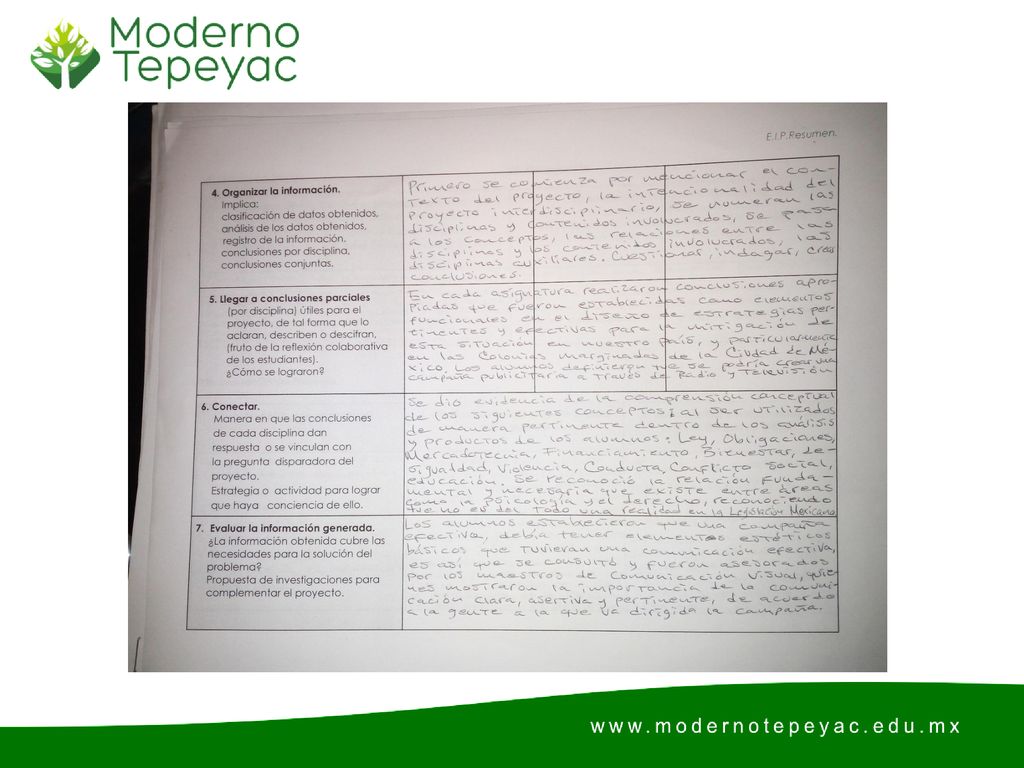 Moderno
Tepeyac
E.I.P.Resumen.
4. Organizar la información.
Implica:
clasificación de datos obtenidos,
análisis de los datos obtenidos,
registro de la información.
conclusiones por disciplina,
conclusiones conjuntas.
Primero se comienza por mencionar el con-
texto del proyecto, la intencionalidad del
proyecto interdisciplinario, se numeran las
disciplinas y contenidos involucrados, se pasa
a los conceptos, las relaciones entre las
disciplinas y los contenidos involucrados, las
disciplinas auxiliares. Cuestionar, indagar, crear
conclusiones.
5. Llegar a conclusiones parciales
(por disciplina) útiles para el
proyecto, de tal forma que lo
aclaran, describen o descifran,
(fruto de la reflexión colaborativa
de los estudiantes).
¿Cómo se lograron?
En cada asignatura realizaron conclusiones apro-
piadas que fueron establecidas como elementos
funcionales en el diseño de estrategias per-
tinentes y efectivas para la mitigación de
esta situación en nuestro país, y particularmente
en las Colonias marginadas de la Ciudad de Mé-
xico. Los alumnos definieron que se podría crear una
campaña publicitaria a través de Radio y Televisión
6. Conectar.
Manera en que las conclusiones
de cada disciplina dan
respuesta o se vinculan con
la pregunta disparadora del
proyecto.
Estrategia o actividad para lograr
que haya conciencia de ello.
Se dio evidencia de la comprensión conceptual
de los siguientes conceptos; al ser utilizados
de manera pertinente dentro de los análisis
y productos de los alumnos: Ley, Obligaciones,
Mercadotecnia, Financiamiento, Bienestar, De-
sigualdad, Violencia, Conducta, Conflicto Social,
educación. Se reconoció la relación funda-
mental y necesaria que existe entre áreas
como la psicología y el derecho, reconociendo
que no es del todo una realidad en la Legislación Mexicana.
7. Evaluar la información generada.
¿La información obtenida cubre las
necesidades para la solución del
problema?
Propuesta de investigaciones para
complementar el proyecto.
Los alumnos establecieron que una campaña
efectiva, debía tener elementos estéticos
básicos que tuvieran una comunicación efectiva,
es así que se consultó y fueron asesorados
por los maestros de Comunicación Visual, quie-
nes mostraron la importancia de la comuni-
cación clara, asertiva y pertinente, de acuerdo
a la gente a la que va dirigida la campaña.
www.modernotepeyac.edu.mx